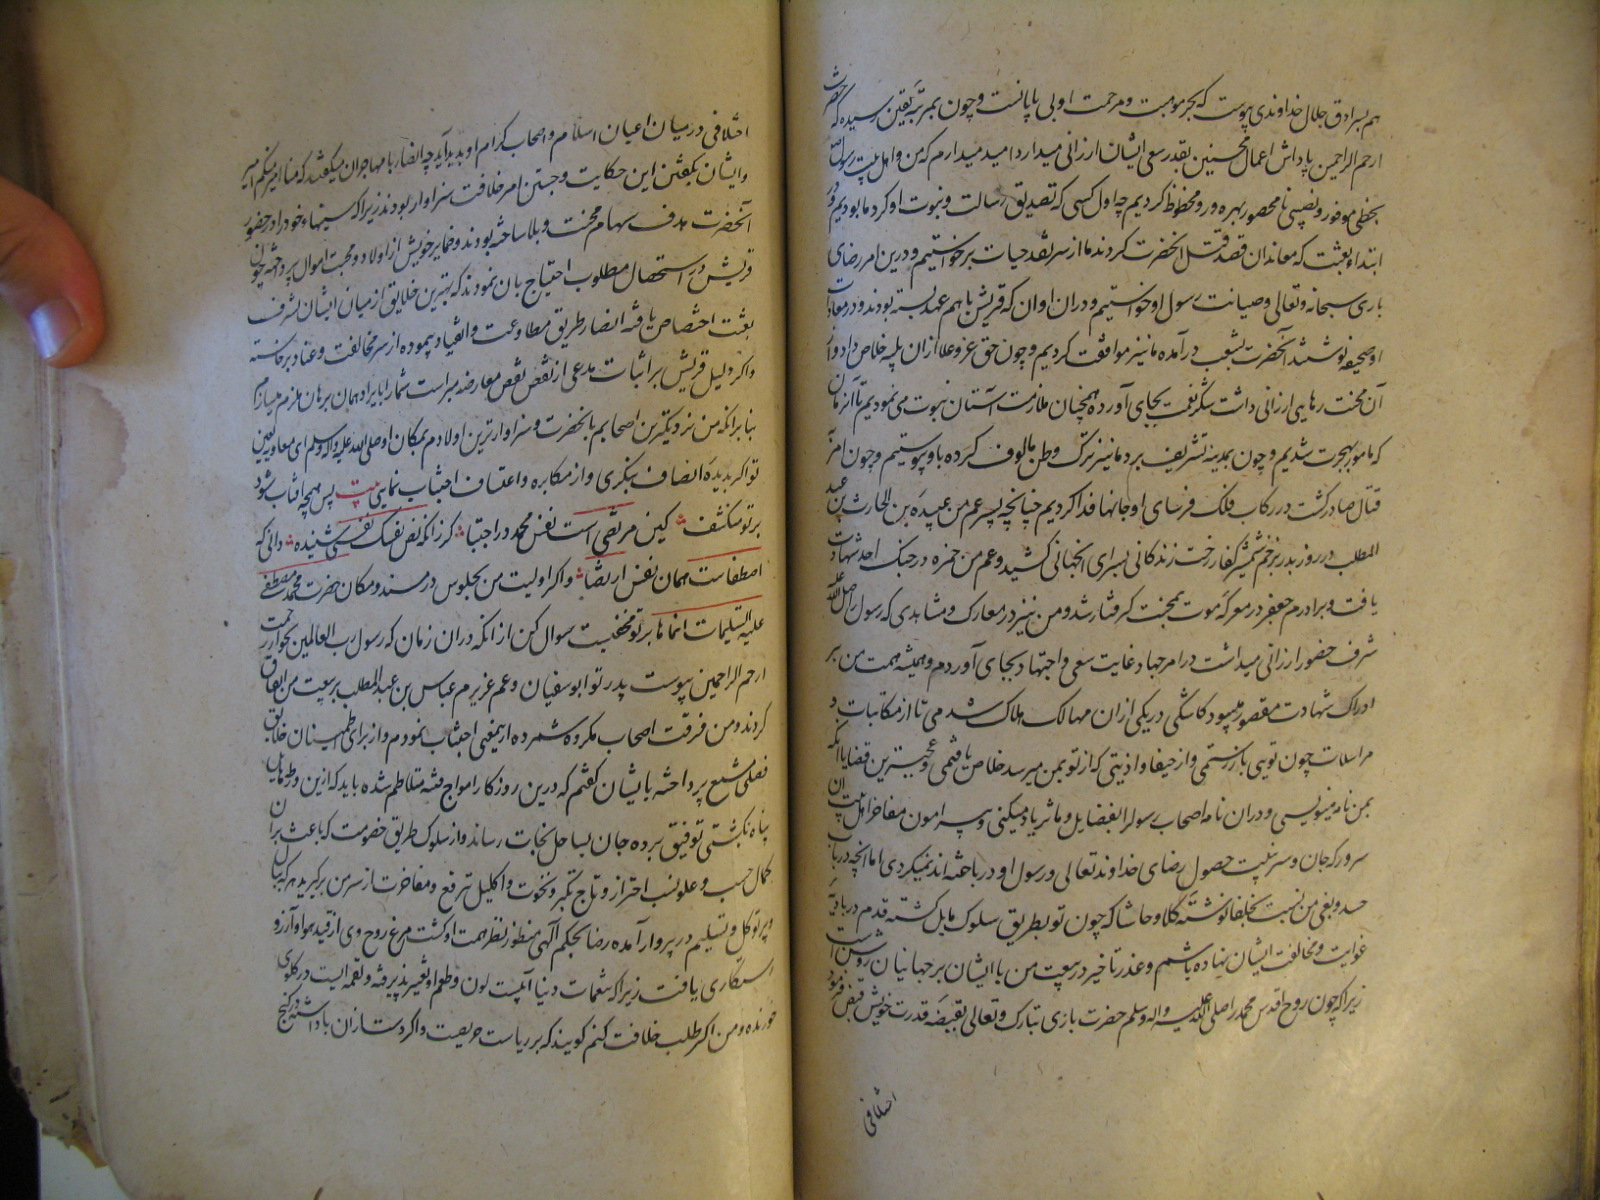 هم بسرادق جلال خداوندی پیوست که بحر موهبت و مرحمت او بی پایانست و چون بمرتبه یقین رسیده که حضرت
ارحم الراحمین پاداش اعمال محسنین بقدر سعی ایشان ارزانی میدارد امید میدارم که من و اهل بیت رسول
بحظی موفور و نصیبی نامحصور بهره ور و محظوظ کردیم چه اول کسی که تصدیق رسالت و نبوت او کرد ما بودیم و در
ابتداء بعثت که معاندان قصد قتل آنحضرت کردند ما از سر نقد حیات برخواستیم و درین امر رضای
باری سبحانه و تعالی و صیانت رسول او خواستیم و دران اوان که قریش با هم عهد بسته بودند و در معادات
او صحیفه نوشتند آنحضرت بشعب درآمده ما نیز موافقت کردیم و چون حق عز و علا ازان بلیه خلاص داد و از
آن محنت رهایی ارزانی داشت شکر نعمت بجای آورده همچنان ملازمت آستان نبوت می نمودیم تا آنزمان
که مامور بهجرت شدیم و چون بمدینه تشریف برد ما نیز ترک وطن مالوف کرده باو پیوستیم و چون امر
قتال صادر کشت در رکاب فلک فرسای او جانها فدا کردیم چنانچه پسر عم من عبیده بن الحارث بن عبد
المطلب در روز بدر بزخم شمشیر کفار رخت زندکانی بسرای آنجهانی کشید و عم من حمزه در جنک احد شهادت
یافت و برادرم جعفر در معرکه موت بمحنت کرفتار شد و من نیز در معارک و مشاهدی که رسول را صلی الله علیه
شرف حضور ارزانی میداشت در امر جهاد غایت سعی و اجتهاد بجای آوردم و همیشه همت من بر
ادراک شهادت مقصور میبود کاشکی در یکی ازان مهالک هلاک شدمی تا از مکاتبات و
مراسلات چون تویی باز رستمی و از حیفا و اذیتی که از تو بمن میرسد خلاص یافتمی و عجبترین قضایا آنکه
بمن نامه مینویسی و دران نامه اصحاب رسول را بفضایل و ماثر یاد میکنی و پیرامون مفاخر اهل بیت آن
سرور که جان و سر بنیت حصول رضای خداوند تعالی و رسول او درباخته اند نمیکردی اما آنچه در باب
حسد و بغی من نسبت بخلفا نوشته کلا و حاشا که چون تو بطریق سلوک مایل کشته قدم در بادیه
غوایت و مخالفت ایشان نهاده باشم و عذر تاخیر در بیعت من با ایشان بر جهانیان روشن است
زیرا که چون روح اقدس محمد را صلی الله علیه و اله وسلم حضرت باری تبارک و تعالی بقبضه قدرت خویش قبض فرمود
اختلافی
اختلافی درمیان اعیان اسلام و اصحاب کرام او پدید آید چه انصار با مهاجران میکفتند که منا امیر منکم امیر
و ایشان بکفتن این حکایت و جستن امر خلافت سزاوار بودند زیرا که سینهاء خود را در حضور
آنحضرت هدف سهام محنت و بلا ساخته بودند و ضمایر خویش از اولاد و محبت اموال پرداخته چون
قریش در استحصال مطلوب احتیاج بان نمودند که بهترین خلایق از میان ایشان شرف
بعثت اختصاص یافته انصار طریق مطاوعت و انقیاد پیموده از سر مخالفت و عناد برخاسته
و اکر دلیل قریش بر اثبات مدعی از نقض نقض معارضه مبراست شما را بایراد همان برهان ملزم میسازم
بنا برانکه من نزدیکترین اصحابم بانحضرت و سزاوارترین اولادم بمکان او صلی الله علیه و اله وسلم ای معاویه یقین
تو اکر بدیده انصاف بنکری و از مکابره و اعتساف اجتناب نمایی بیت پس مهچه آفتاب شود
بر تو منکشف کین مرتضی است نفس محمد در اجتبا کر زانکه نص نفسک نفسی شنیده دانی که
اصطفاست همان نفس ارتضا و اکر اولیت من بجلوس در مسند و مکان حضرت محمد مصطفی
علیه التسلیمات انماها بر تو مخفیست سوال کن از انکه دران زمان که رسول رب العالمین بجوار رحمت
ارحم الراحمین پیوست پدر تو ابوسفیان و عم عزیزم عباس بن عبد المطلب بر بیعت من اتفاق
کردند و من فرقت اصحاب مکروه شمرده ازینمعنی اجتناب نمودم و از برای اطمینان خلایق
فعلی مشبع پرداخته بایشان کفتم که درین روزکار امواج فتنه متلاطم شده باید که ازین ورطه هایل
پناه بکشتی توفیق برده جان بساحل نجات رساند و از سلوک طریق خصومت که باعث بران
کمال حسب و علو نسب احتراز و تاج تکبر و نخوت و اکلیل ترفع و مفاخرت از سر من برکیرید هر که ببال
و پر توکل و تسلیم در پرواز آمده رضا بحکم آلهی منظور نظر همت او کشت مرغ روح وی از قید هوا و آرزو
رستکاری یافت زیرا که نعمات دنیا آبیست لون و طعم او تغییر پذیرفته و لقمه ایست در کلوی
خورنده و من اکر طلب خلافت کنم کویند که بر ریاست حریصست و اکر دست ازان بازداشته در کنج